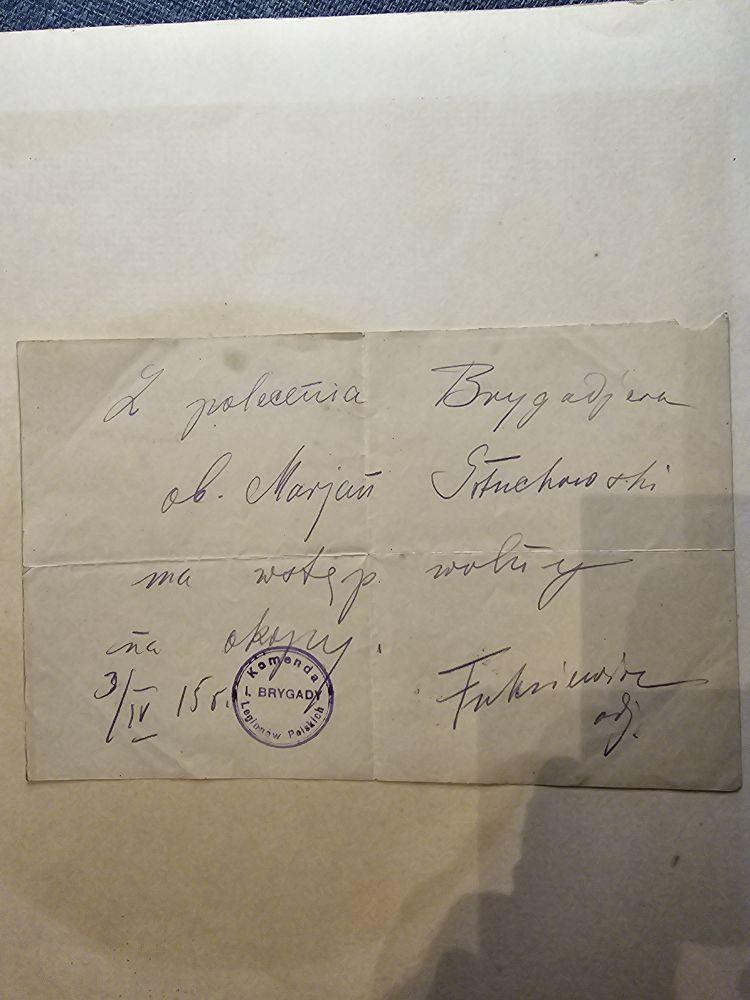 Z polecenia Brygadjera
ob. Marjan Słuchowski
ma wstęp wolny
na okopy.
3/IV 15 r.
Komenda
I. BRYGADY
Legionów Polskich
adj.